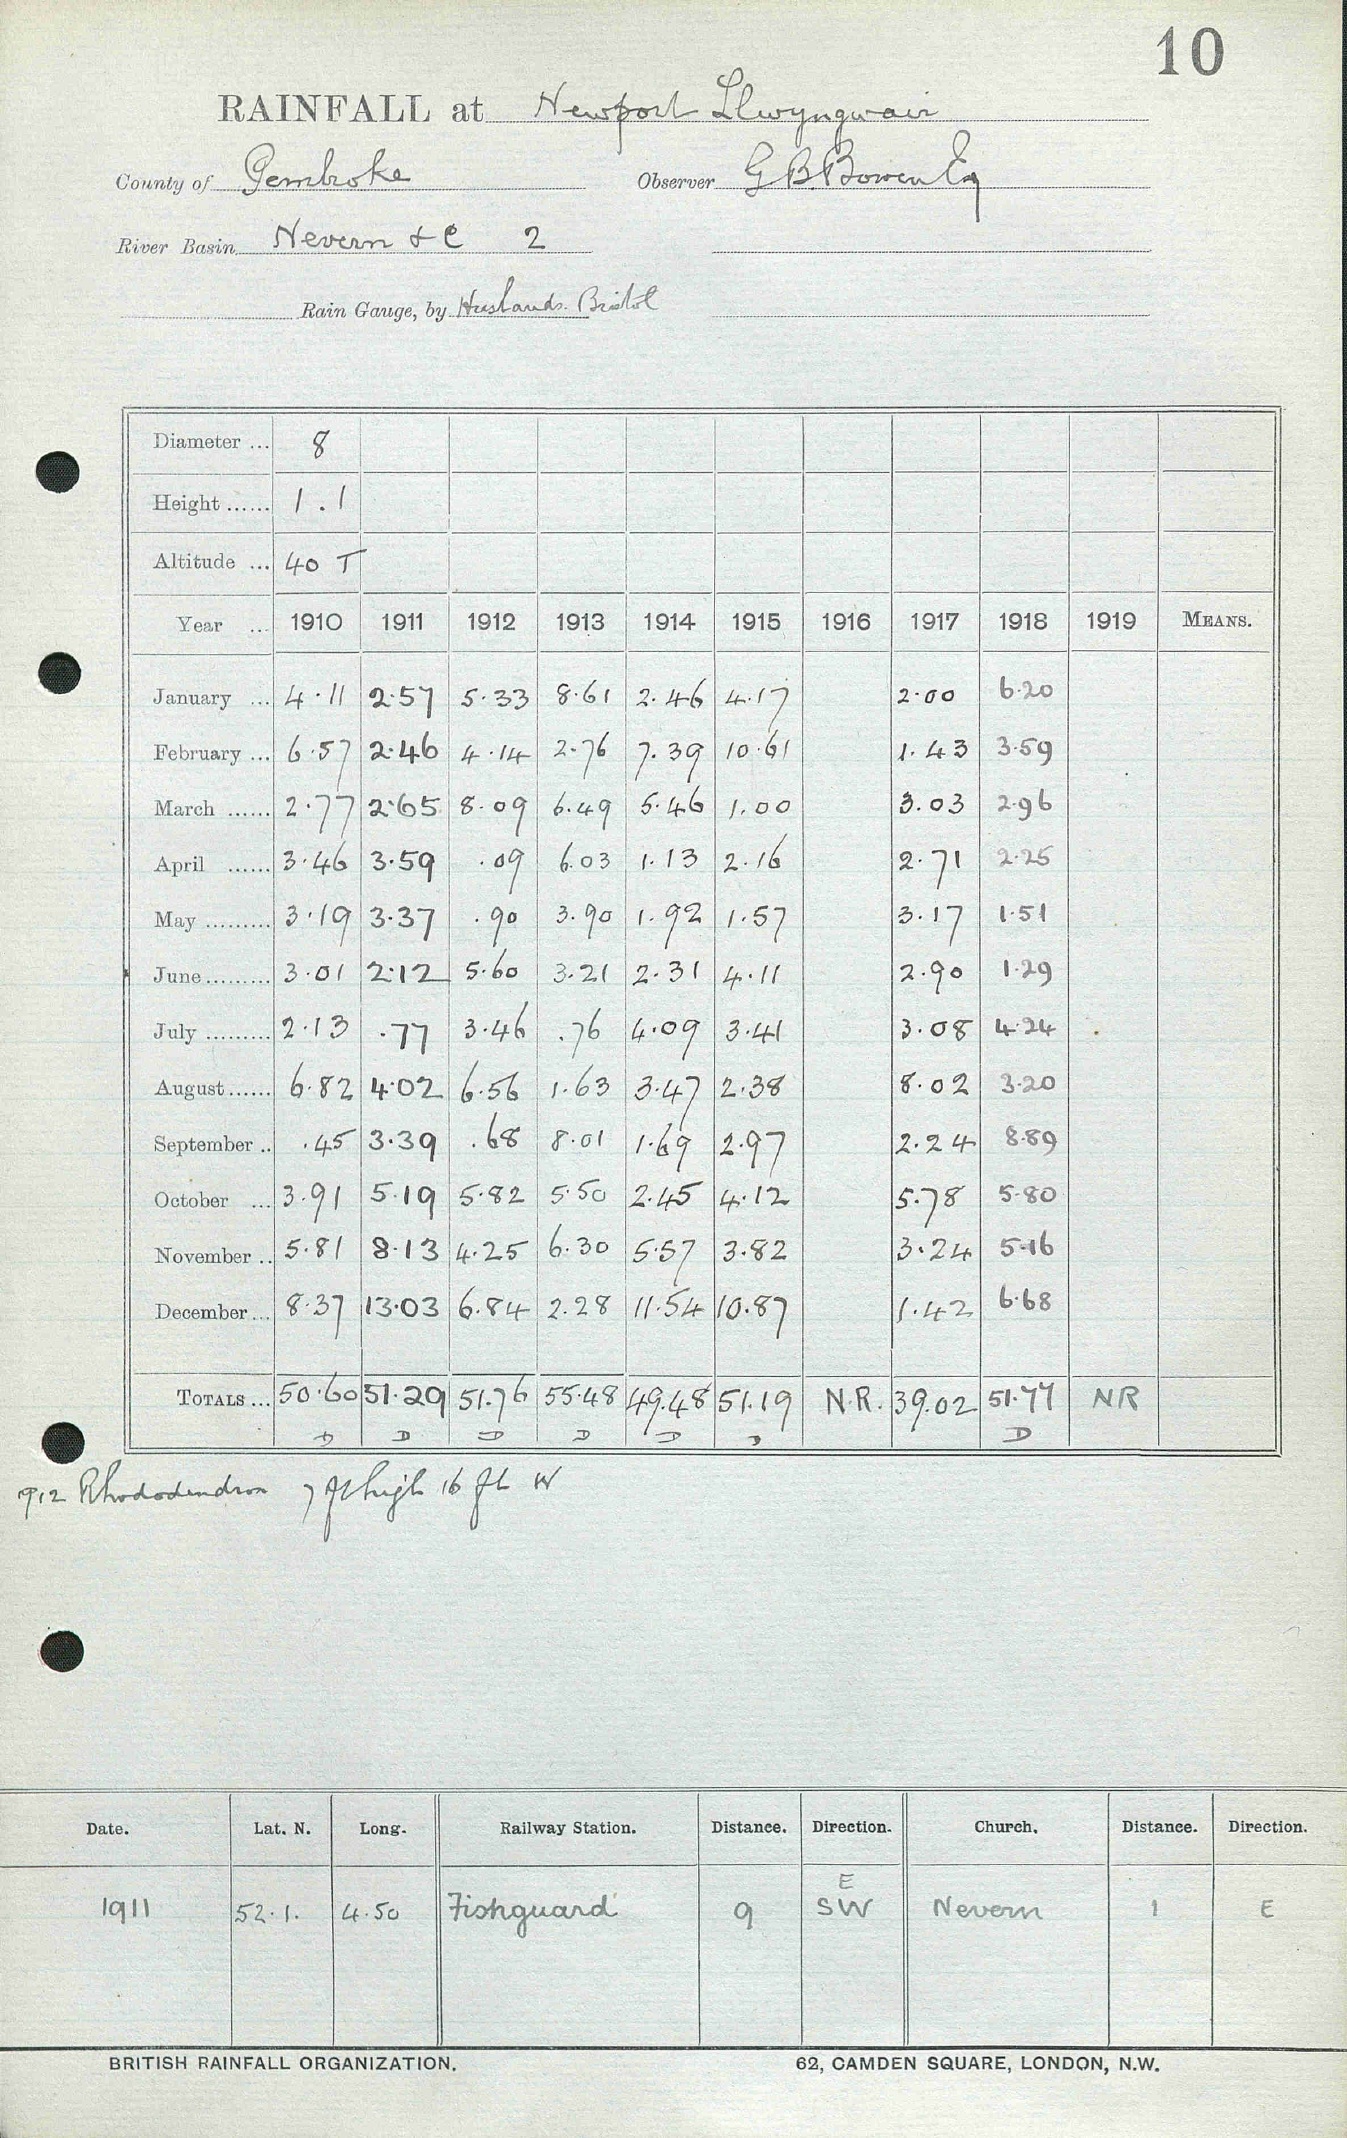 10
RAINFALL at Newport Llwyngwair
County of Pembroke Observer G B Bowen Esq
River Basin Nevern & C 2
Rain Gauge, by Husbands. Bristol
Diameter ... 8
Height ...... 1.1
Altitude ... 40 T
Year ... 1910 1911 1912 1913 1914 1915 1916 1917 1918 1919 MEANS.
January ... 4.11 2.57 5.33 8.61 2.46 4.17 2.00 6.20
February ... 6.57 2.46 4.14 2.76 7.39 10.61 1.43 3.59
March ...... 2.77 2.65 8.09 6.49 5.46 1.00 3.03 2.96
April ...... 3.46 3.59 .09 6.03 1.13 2.16 2.71 2.25
May ......... 3.19 3.37 .90 3.90 1.92 1.57 3.17 1.51
June ......... 3.01 2.12 5.60 3.21 2.31 4.11 2.90 1.29
July ......... 2.13 .77 3.46 .76 4.09 3.41 3.08 4.24
August ...... 6.82 4.02 6.56 1.63 3.47 2.38 8.02 3.20
September .. .45 3.39 .68 8.01 1.69 2.97 2.24 8.89
October ... 3.91 5.19 5.82 5.50 2.45 4.12 5.78 5.80
November .. 5.81 8.13 4.25 6.30 5.57 3.82 3.24 5.16
December ... 8.37 13.03 6.84 2.28 11.54 10.87 1.42 6.68
TOTALS ... 50.60 51.29 51.76 55.48 49.48 51.19 N.R. 39.02 51.77 NR
D D D D D D D
1912 Rhododendron 7 ft high 16 ft W
Date. Lat. N. Long. Railway Station. Distance. Direction. Church. Distance. Direction.
E
1911 52.1. 4.50 Fishguard 9 SW Nevern 1 E
BRITISH RAINFALL ORGANIZATION. 62, CAMDEN SQUARE, LONDON, N.W.